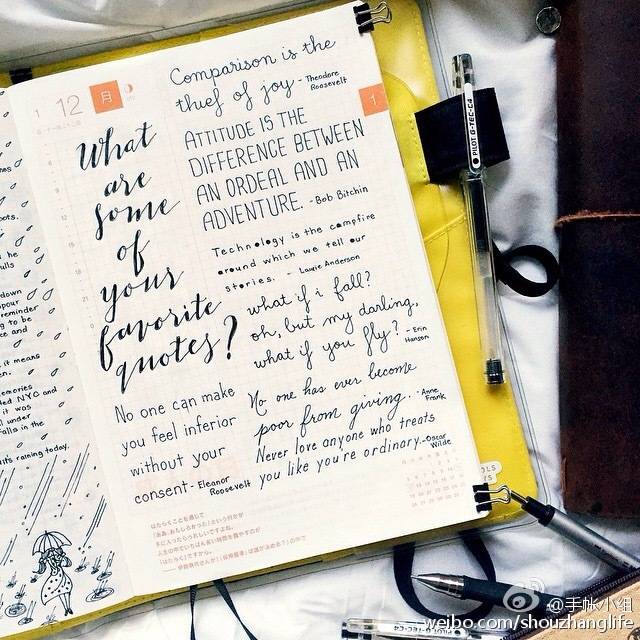 1 12 月
What
are
some
of
your
favorite
quotes?
No one can make
you feel inferior
without your
consent - Eleanor
Roosevelt
Comparison is the
thief of joy - Theodore
Roosevelt
ATTITUDE IS THE
DIFFERENCE BETWEEN
AN ORDEAL AND AN
ADVENTURE. - Bob Bitchin
Technology is the campfire
around which we tell our
stories. - Laurie Anderson
what if i fall?
oh, but my darling,
what if you fly? - Erin
Hanson
No one has ever become
poor from giving. - Anne
Frank
Never love anyone who treats
you like you're ordinary. - Oscar
Wilde
1
はたらくことを通じて
PILOT G-TEC-C4
down
pour
reminder
ng to be
ce and
it means
en.
emories
ded NYC and
it was
under
falls in the
it's raining today.
@手帐小组
weibo.com/shouzhanglife